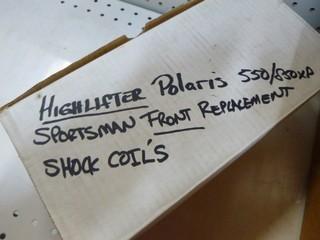 HIGHLIFTER POLARIS 550/850XP
SPORTSMAN FRONT REPLACEMENT
SHOCK COIL'S